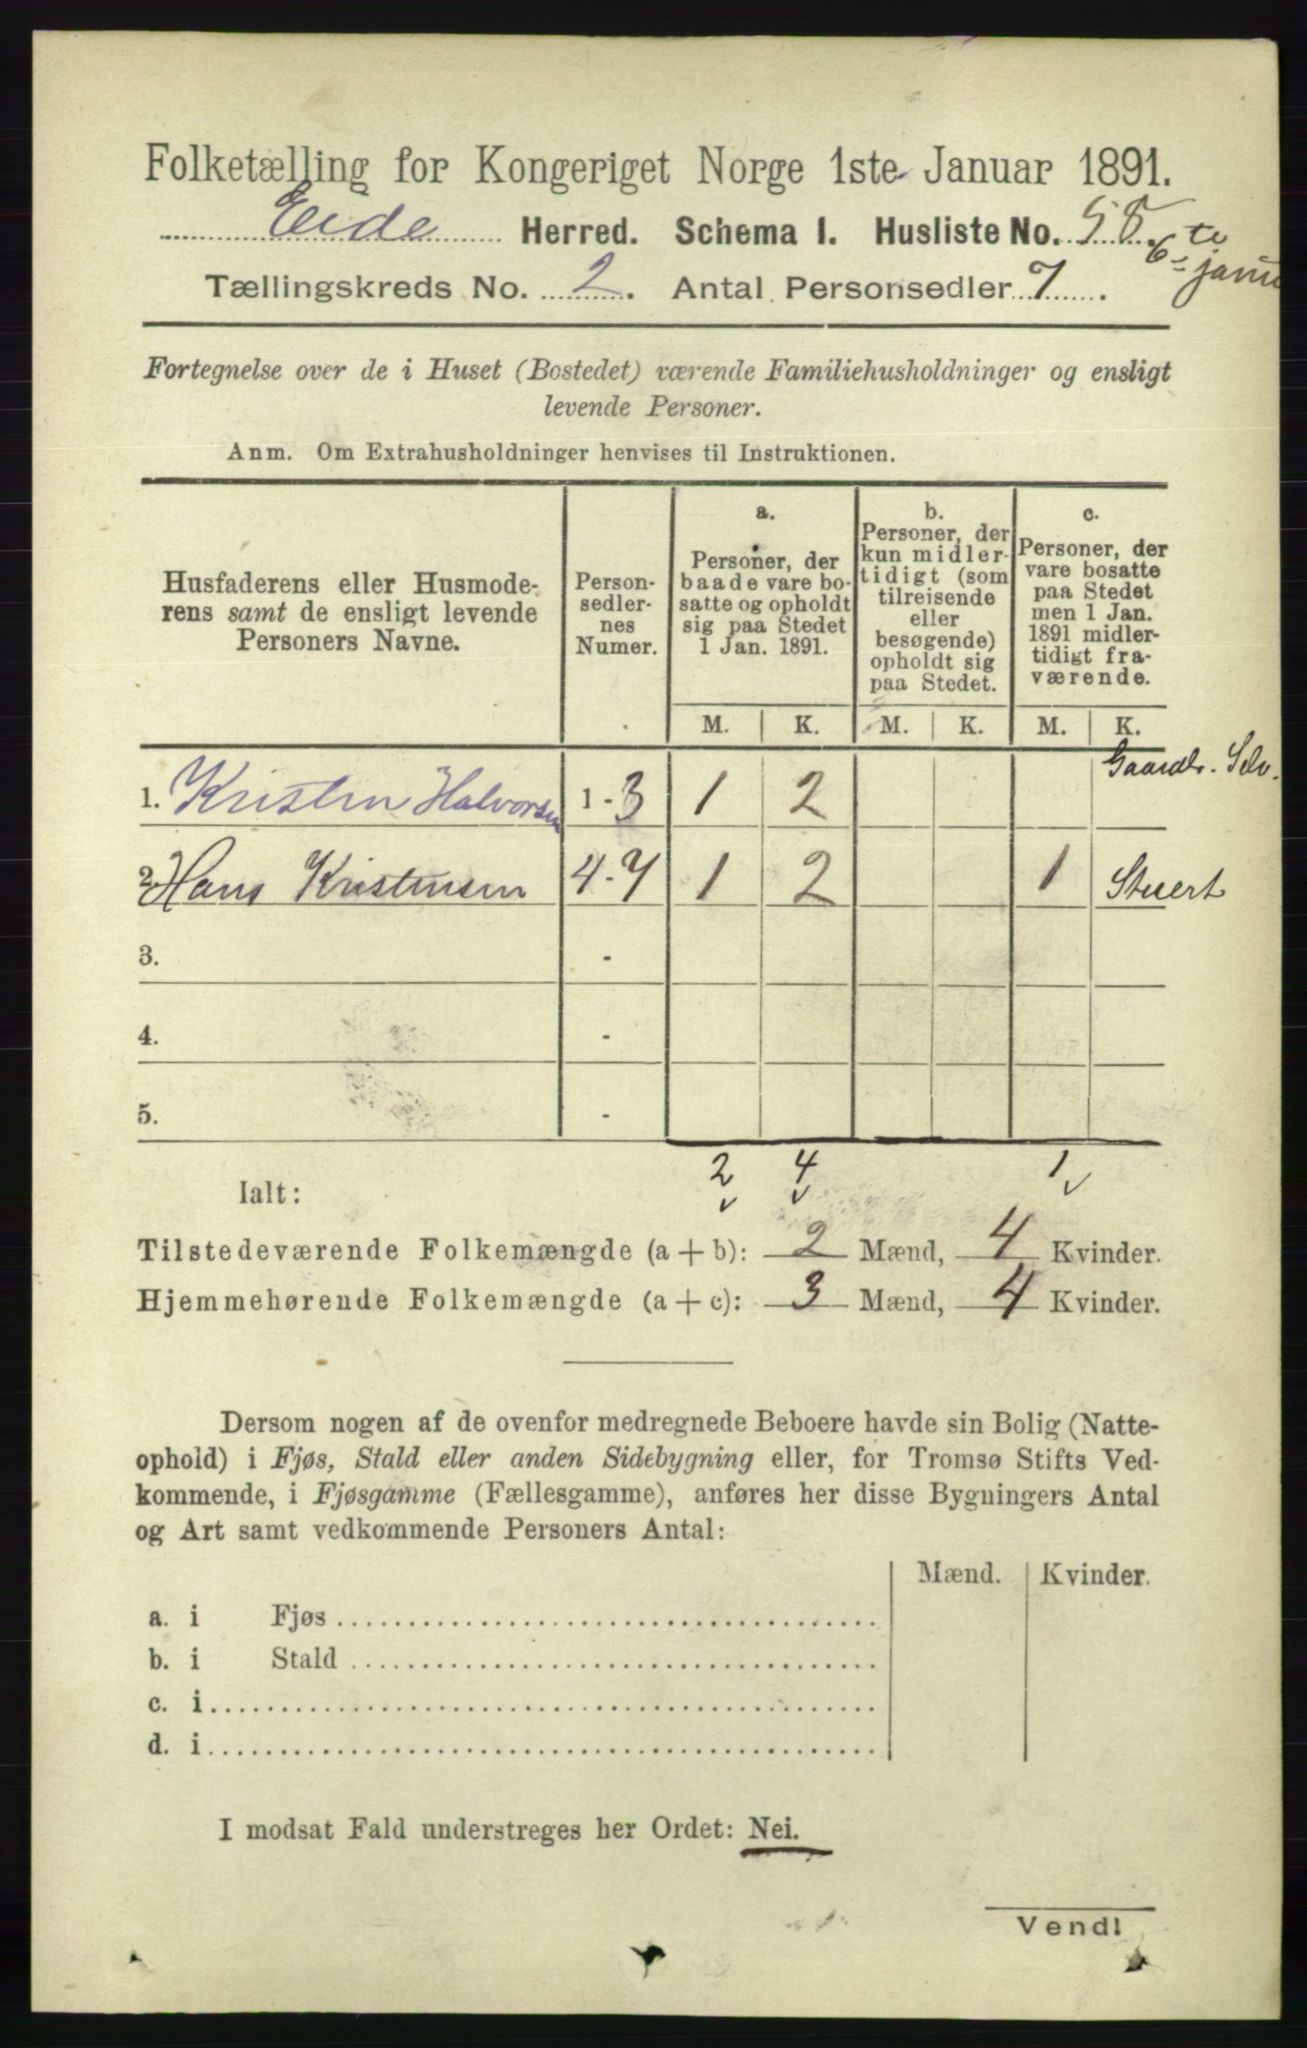 Folketælling for Kongeriget Norge 1ste Januar 1891.
Eide Herred. Schema 1. Husliste No. 58.
6te janu
Tællingskreds No. 2. Antal Personsedler 7.
Fortegnelse over de i Huset (Bostedet) værende Familiehusholdninger og ensligt
levende Personer.
Anm. Om Extrahusholdninger henvises til Instruktionen.
Husfaderens eller Husmode-
rens samt de ensligt levende
Personers Navne.
Person-
sedler-
nes
Numer.
a.
Personer, der
baade vare bo-
satte og opholdt
sig paa Stedet
1 Jan. 1891.
b.
Personer, der
kun midler-
tidigt (som
tilreisende
eller
besøgende)
opholdt sig
paa Stedet.
c.
Personer, der
vare bosatte
paa Stedet
men 1 Jan.
1891 midler-
tidigt fra-
værende.
M. K. M. K. M. K.
1. Kristen Halvorsen 1 - 3 1 2 Gaardb. Selv.
2. Hans Kristensen 4 - 7 1 2 1 Stuert
3. -
4. -
5. -
2 4 1
Ialt:
Tilstedeværende Folkemængde (a + b): 2 Mænd, 4 Kvinder.
Hjemmehørende Folkemængde (a + c): 3 Mænd, 4 Kvinder.
Dersom nogen af de ovenfor medregnede Beboere havde sin Bolig (Natte-
ophold) i Fjøs, Stald eller anden Sidebygning eller, for Tromsø Stifts Ved-
kommende, i Fjøsgamme (Fællesgamme), anføres her disse Bygningers Antal
og Art samt vedkommende Personers Antal:
Mænd. Kvinder.
a. i Fjøs
b. i Stald
c. i
d. i
I modsat Fald understreges her Ordet: Nei.
Vend!